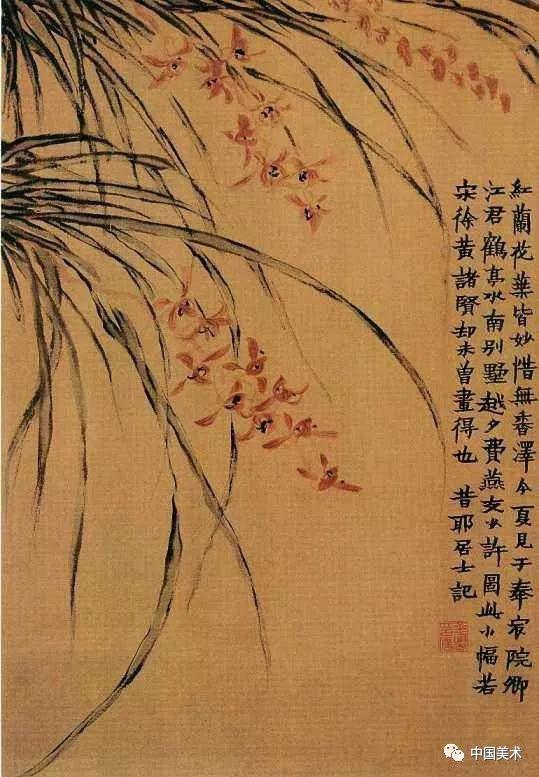 紅蘭花葉皆妙惜無香澤今夏見于奉宸院卿
江君鶴亭水南別墅越夕費燕支少許圖此小幅若
宋徐黃諸賢却未曾畫得也 昔耶居士記
中国美术